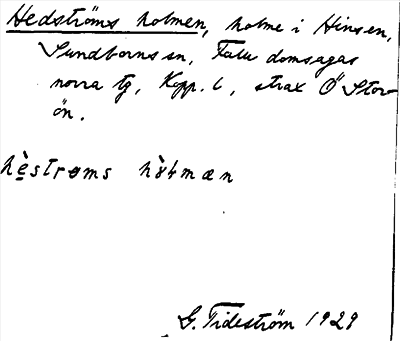 Hedströms holmen, holme i Hinsen,
Sundborns sn, Falu domsagas
norra tg, Kopp. l, strax Ö Stor-
ön.
hè̱strøms hòɫmæn
G. Tideström 1929